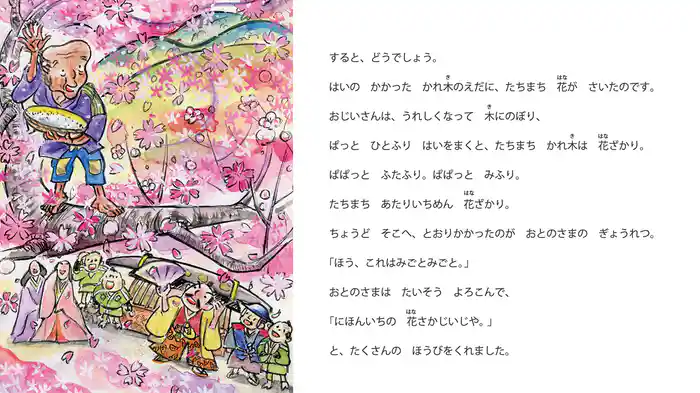 すると、どうでしょう。
はいの　かかった　かれ木のえだに、たちまち　花が　さいたのです。
おじいさんは、うれしくなって　木にのぼり、
ぱっと　ひとふり　はいをまくと、たちまち　かれ木は　花ざかり。
ぱぱっと　ふたふり。ぱぱっと　みふり。
たちまち　あたりいちめん　花ざかり。
ちょうど　そこへ、とおりかかったのが　おとのさまの　ぎょうれつ。
「ほう、これはみごとみごと。」
おとのさまは　たいそう　よろこんで、
「にほんいちの　花さかじいじや。」
と、たくさんの　ほうびをくれました。